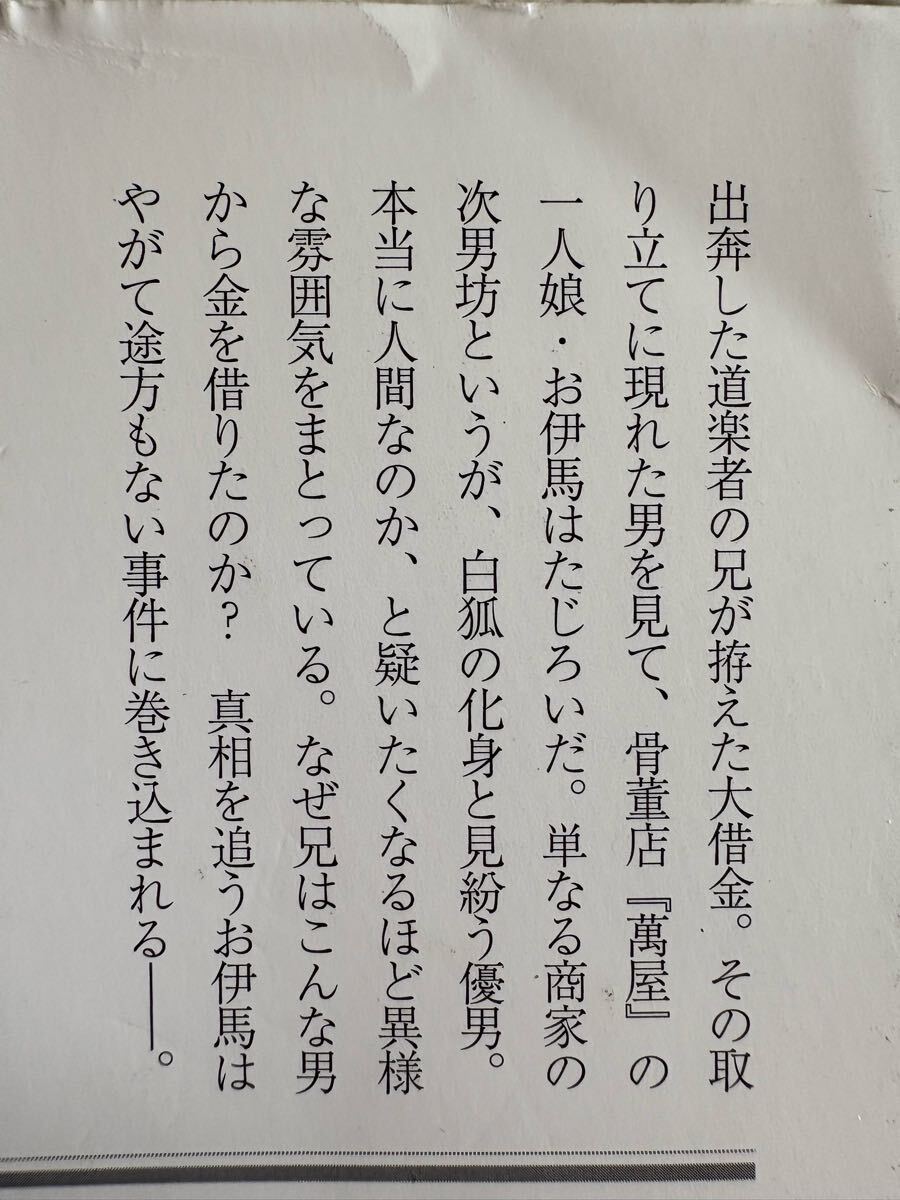 出奔した道楽者の兄が拵えた大借金。その取
り立てに現れた男を見て、骨董店『萬屋』の
一人娘・お伊馬はたじろいだ。単なる商家の
次男坊というが、白狐の化身と見紛う優男。
本当に人間なのか、と疑いたくなるほど異様
な雰囲気をまとっている。なぜ兄はこんな男
から金を借りたのか？　真相を追うお伊馬は
やがて途方もない事件に巻き込まれる――。